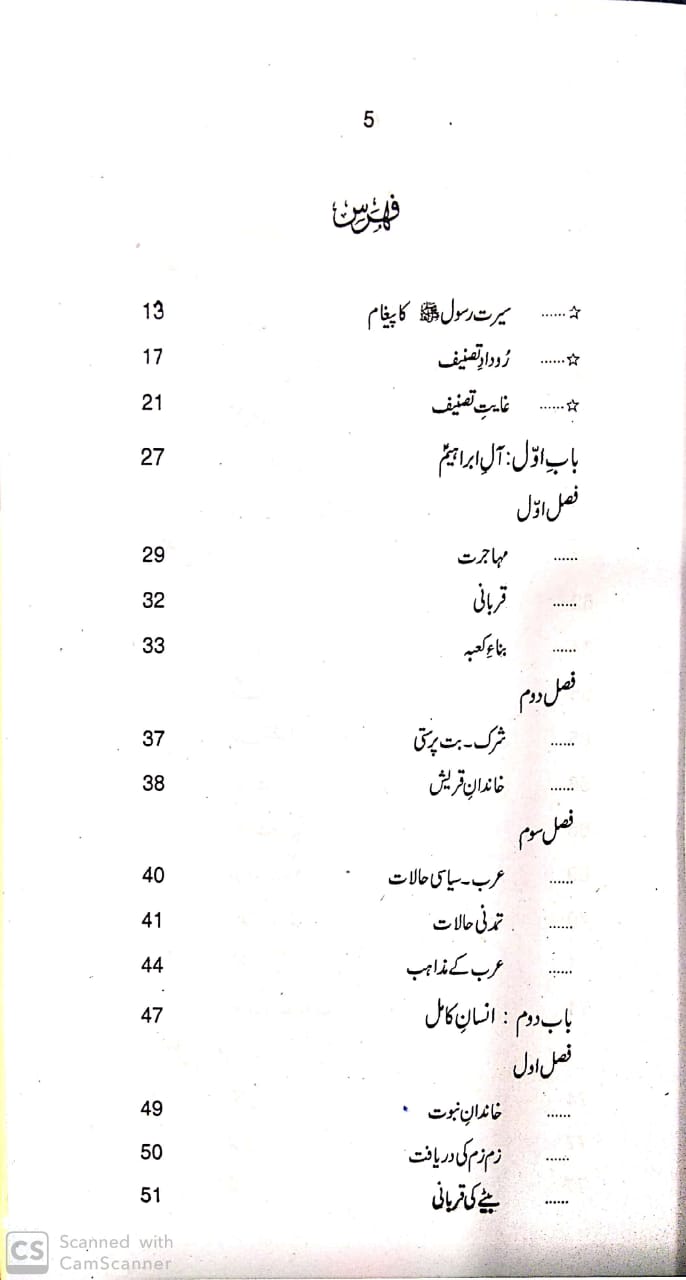 5
فہرس
☆...... سیرت رسول ﷺ کا پیغام 13
☆...... رُودادِ تصنیف 17
☆...... غایتِ تصنیف 21
بابِ اوّل: آلِ ابراہیمؑ 27
فصل اوّل
...... مہاجرت 29
...... قربانی 32
...... بناءِ کعبہ 33
فصل دوم
...... شرک۔بت پرستی 37
...... خاندانِ قریش 38
فصل سوم
...... عرب۔سیاسی حالات 40
...... تمدنی حالات 41
...... عرب کے مذاہب 44
باب دوم : انسانِ کامل 47
فصل اول
...... خاندانِ نبوت 49
...... زم زم کی دریافت 50
...... بیٹے کی قربانی 51
CS Scanned with
CamScanner